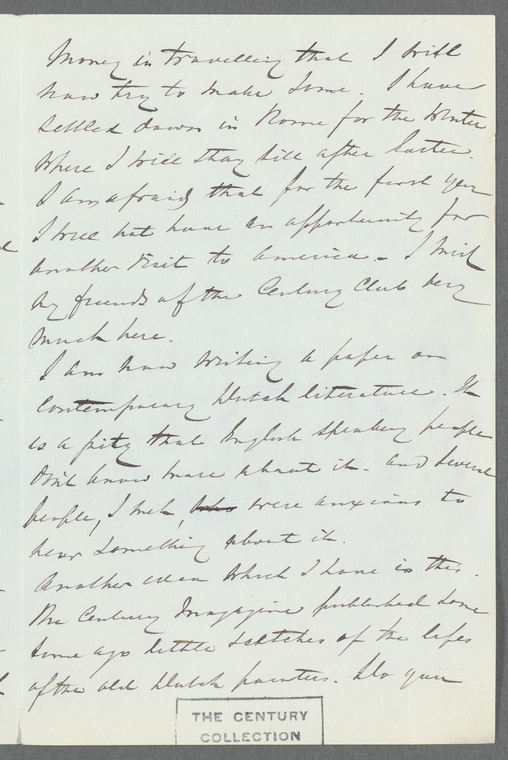 money in travelling that I will
now try to make some. I have
settled down in Rome for the Winter
where I will stay till after Easter.
I am afraid that for the first year
I will not have an opportunity for
another visit to America. I miss
my friends of the Century Club very
much here.
I am now writing a paper on
Contemporary Dutch literature. It
is a pity that English speaking people
don't know more about it. And several
people, I met, were anxious to
hear something about it.
Another idea which I have is this.
The Century Magazine published some
time ago little sketches of the lifes
of the old Dutch painters. Do you
THE CENTURY
COLLECTION